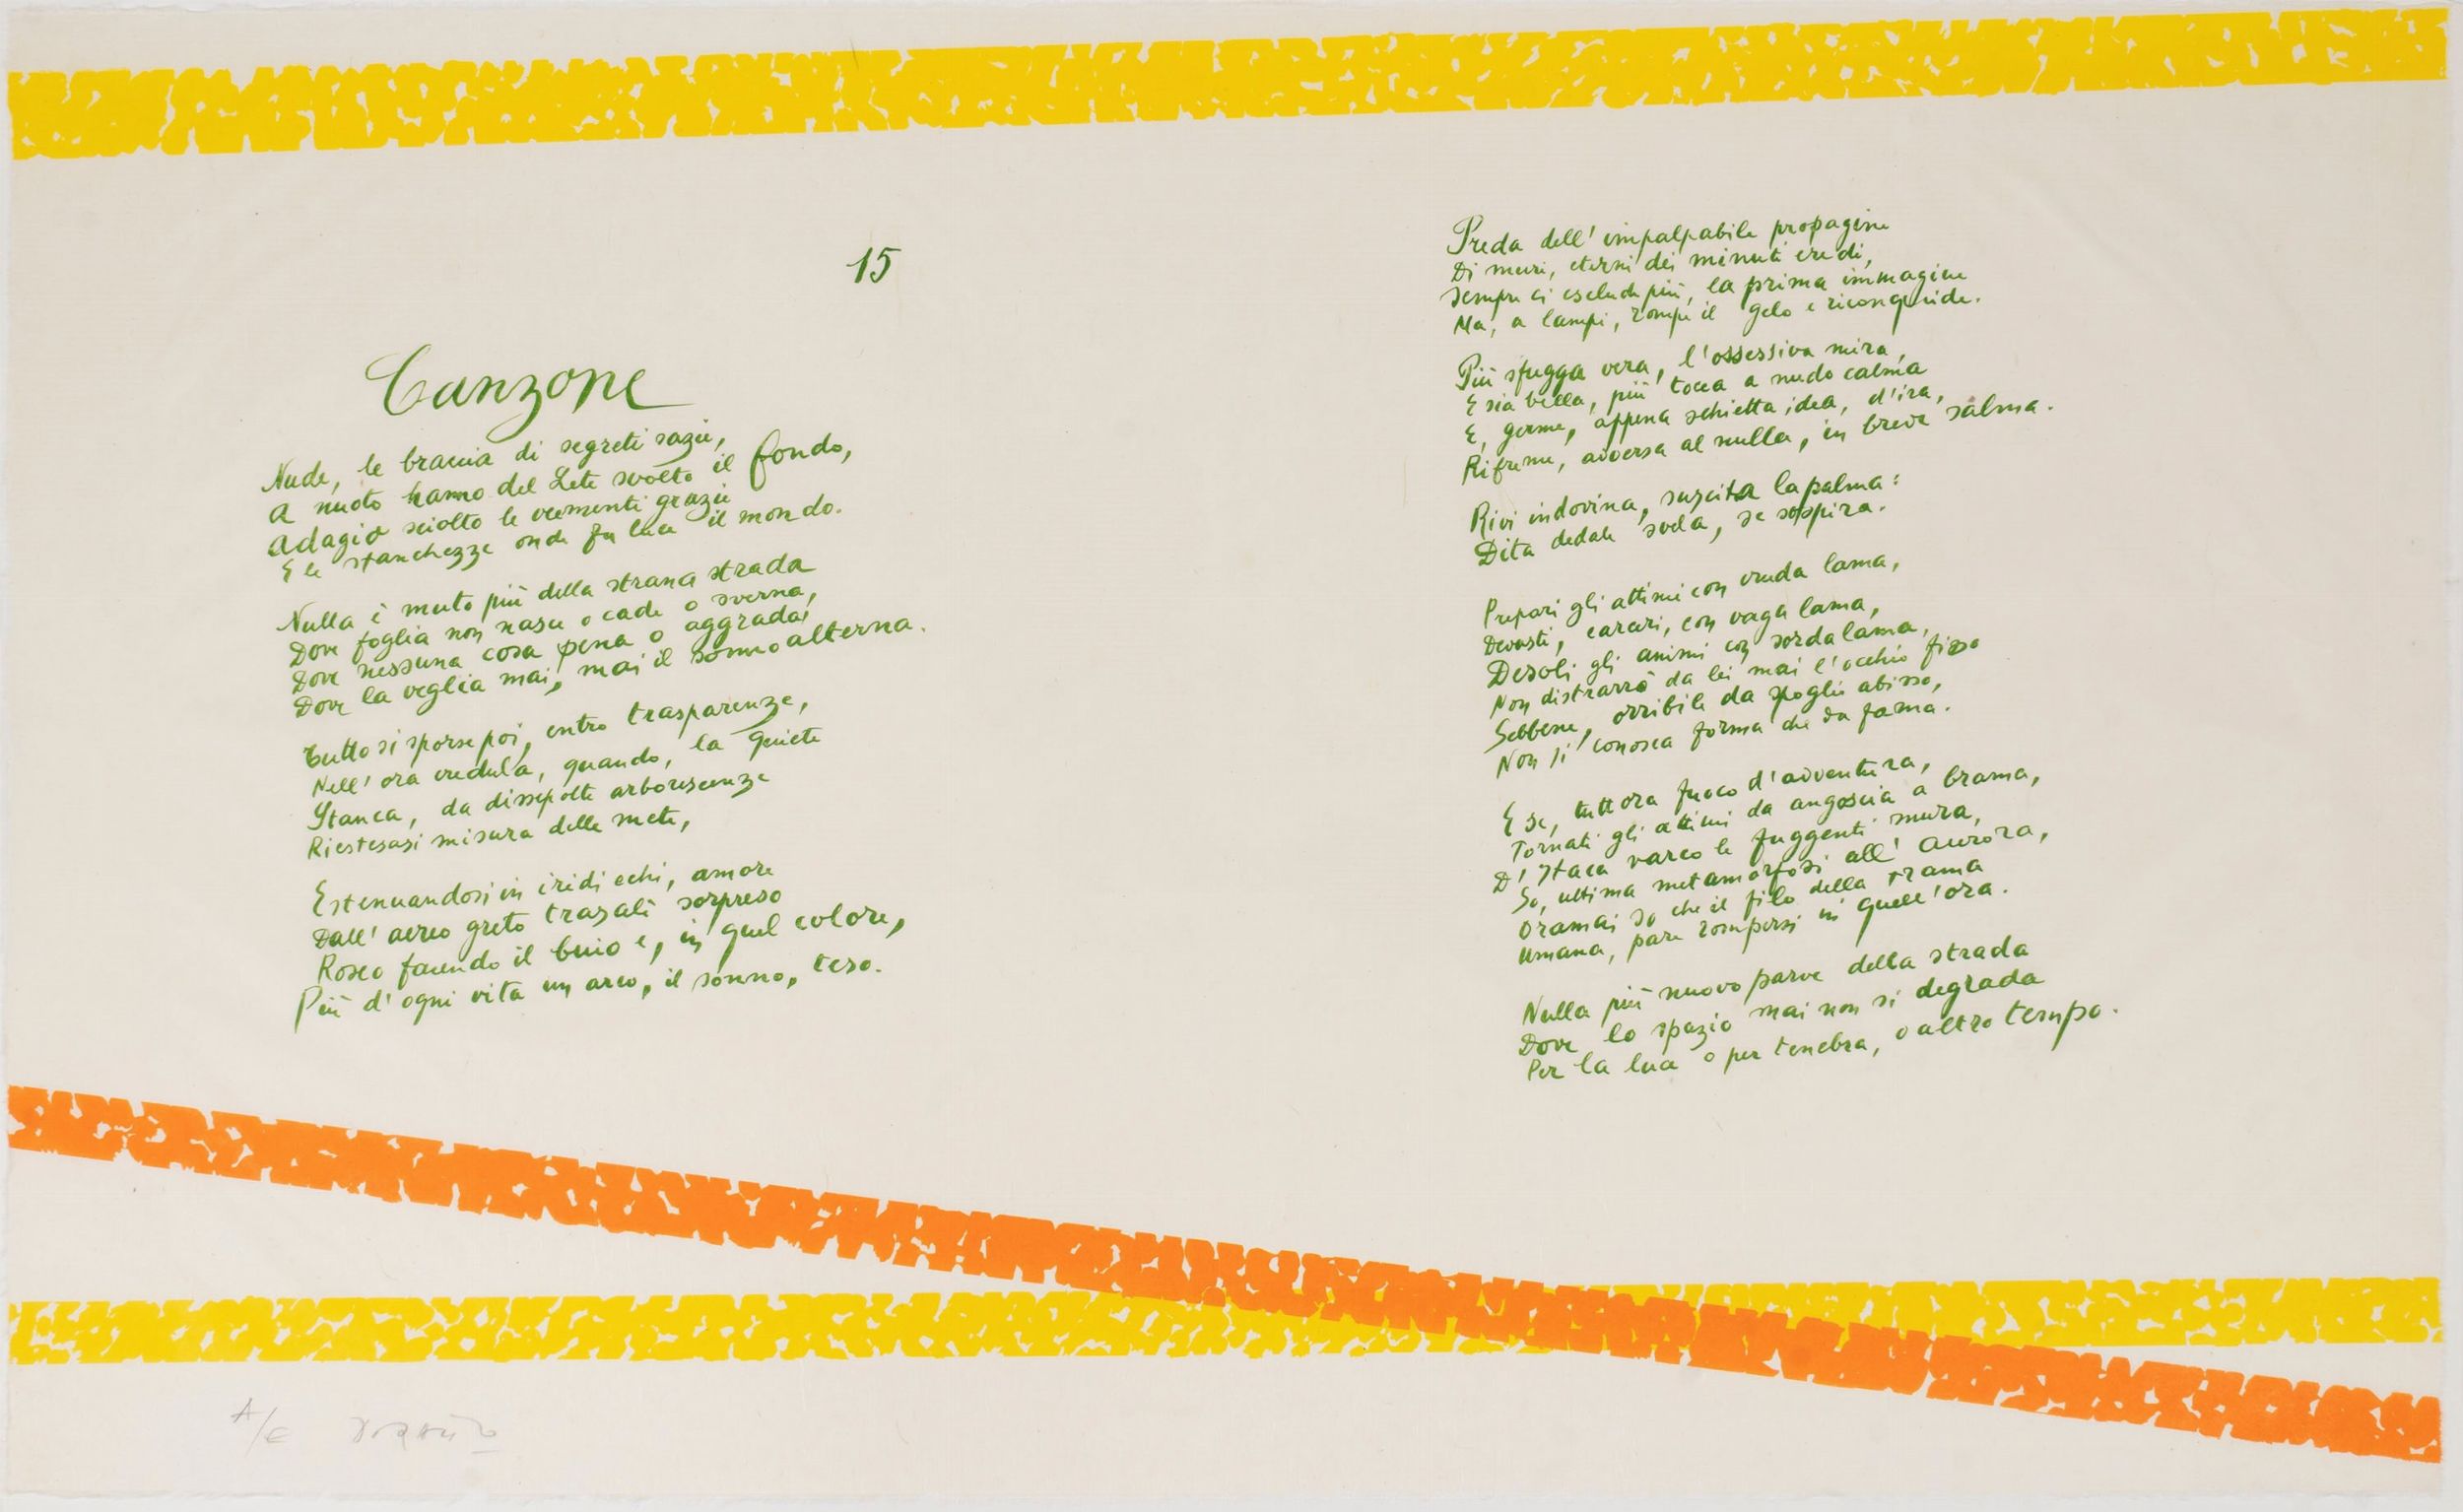 15
Canzone
Nude, le braccia di segreti sazie,
A nuoto hanno del Lete svolto il fondo,
Adagio sciolto le veementi grazie
E le stanchezze onde fu luce il mondo.
Nulla è muto più della strana strada
Dove foglia non nasce o cade o sverna,
Dove nessuna cosa pena o aggrada,
Dove la veglia mai, mai il sonno alterna.
Tutto si sporse poi, entro trasparenze,
Nell'ora credula, quando, la quiete
Stanca, da dissepolte arborescenze
Riestesasi misura delle mete,
Estenuandosi in iridi echi, amore
Dall'aereo greto trasalì sorpreso
Roseo facendo il buio e, in quel colore,
Più d'ogni vita un arco, il sonno, teso.
Preda dell'impalpabile propagine
Di muri, eterni dei minuti eredi,
Sempre ci esclude più, la prima immagine
Ma, a lampi, rompe il gelo e riconquide.
Più sfugga vera, l'ossessiva mira,
E sia bella, più tocca a nudo calma
E, germe, appena schietta idea, d'ira,
Rifreme, avversa al nulla, in breve salma.
Rivi indovina, suscita la palma:
Dita dedale svela, se sospira.
Prepari gli attimi con cruda lama,
Devasti, carceri, con vaga lama,
Desoli gli animi con sorda lama,
Non distrarrò da lei mai l'occhio fisso
Sebbene, orribile da spoglio abisso,
Non si conosca forma che da fama.
E se, tuttora fuoco d'avventura,
Tornati gli attimi da angoscia a brama,
D'Itaca varco le fuggenti mura,
So, ultima metamorfosi all'aurora,
Oramai so che il filo della trama
Umana, pare rompersi in quell'ora.
Nulla più nuovo parve della strada
Dove lo spazio mai non si degrada
Per la luce o per tenebra, o altro tempo.
A/E